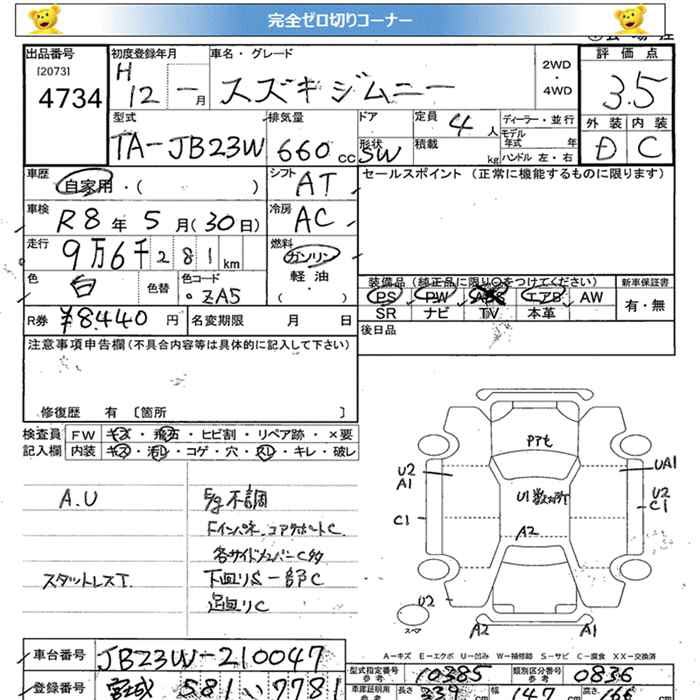 完全ゼロ切りコーナー
出品番号 初度登録年月 車名・グレード 評価点
[2073] H 2WD
4734 12 一月 スズキジムニー ・4WD 3.5
型式 排気量 ドア 定員 4人 ディーラー・並行 外装 内装
TA-JB23W 660cc 形状 SW 積載 kg モデル年式 年 ハンドル 左・右 D C
車歴 自家用・( ) シフト AT セールスポイント (正常に機能するものに限ります)
車検 R8年5月(30日) 冷房 AC
走行 9万6千281km 燃料 ガソリン
軽油
・( )
色 白 色替 色コード ・ZA5
装備品(純正品に限り○をつけてください) 新車保証書
PS PW ABS エアB AW 有・無
SR ナビ TV 本革
R券 ¥8.440円 名変期限 月 日 後日品
注意事項申告欄(不具合内容等は具体的に記入して下さい)
修復歴 有 〔箇所 〕
検査員 FW キズ・飛石・ヒビ割・リペア跡・×要
記入欄 内装 キズ・汚レ・コゲ・穴・スレ・キレ・破レ
A.U E/g不調
Fインパネ、コアサポートC
各サイドメンバーC多
スタットレスT. 下回りS 一部C
足回りC
PPt
U2
A1
UA1
U1数カ所
U2
C1
C1
A2
U2
スマ A2 A1
A-キズ E-エクボ U-凹み W-補修跡 S-サビ C-腐食 XX-交換済
車台番号 JB23W-210047
型式指定番号 参考 10385 類別区分番号 参考 0836
登録番号 宮城 581 い 7781
車庫証明用 参考 長さ 339 cm 幅 147 cm 高さ 166 cm